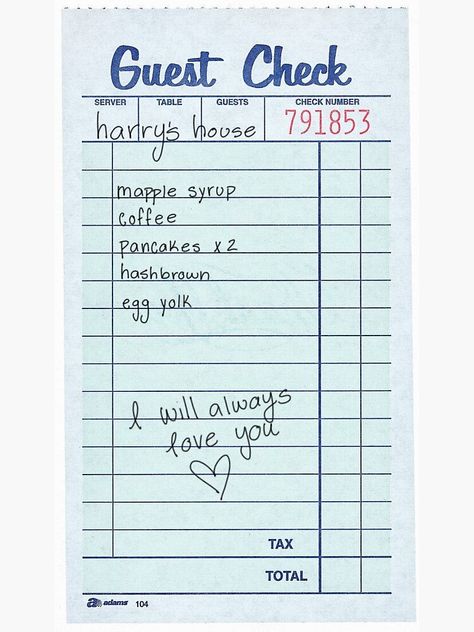 Guest Check
SERVER TABLE GUESTS CHECK NUMBER
harry's house 791853
mapple syrup
coffee
pancakes x 2
hashbrown
egg yolk
I will always
love you
TAX
TOTAL
adams 104